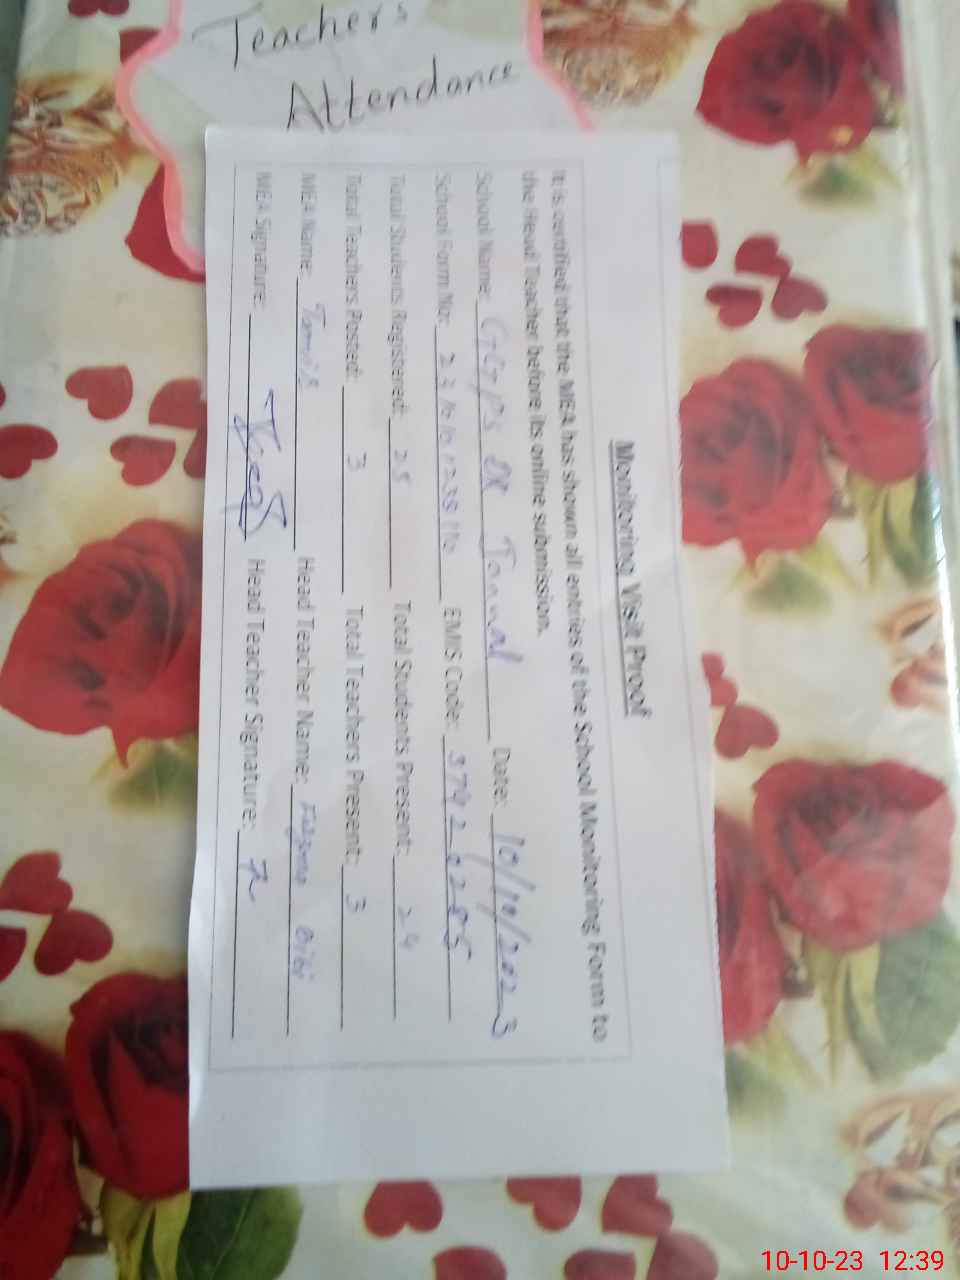 Teachers
Attendance
Monitoring Visit Proof
It is certified that the MEA has shown all entries of the School Monitoring Form to
the Head Teacher before its online submission.
School Name: GGPS Tonnal Date: 10/10/2023
School Form No: EMIS Code:
Total Students Registered: 25 Total Students Present: 24
Total Teachers Posted: 3 Total Teachers Present: 3
MEA Name: Head Teacher Name: Bibi
MEA Signature: Head Teacher Signature:
10-10-23 12:39